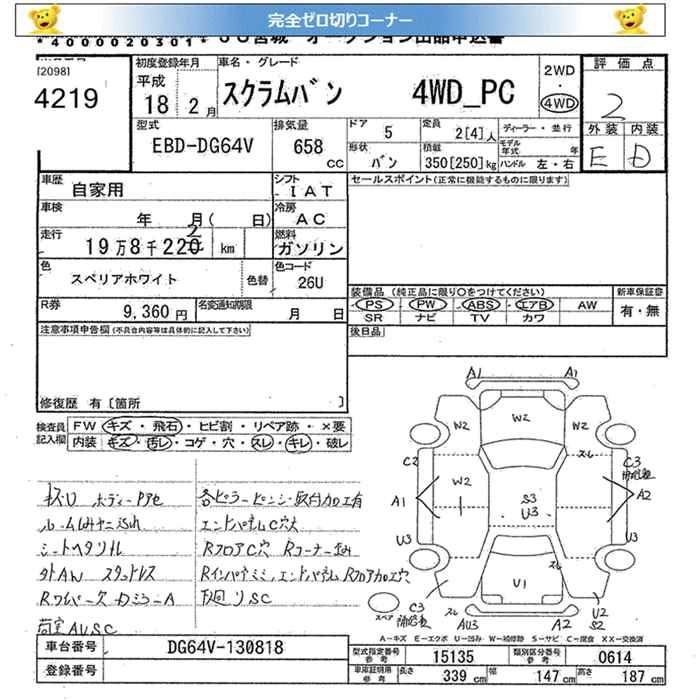 完全ゼロ切りコーナー
*4000020301*
[2098]
4219
初度登録年月
平成
18 2月
車名・グレード
スクラムバン 4WD_PC
2WD
・
4WD
評価点
2
外装 内装
E D
型式
EBD-DG64V
排気量
658
CC
ドア 5
定員 2[4]人
ディーラー・並行
モデル年式 年
形状 バン
積載 350[250]kg
ハンドル 左・右
車歴 自家用
シフト IAT
セールスポイント(正常に機能するものに限ります)
車検 年 月( 日)
冷房 AC
走行 19万8千220 km
2
燃料 ガソリン
色 スペリアホワイト
色替
色コード 26U
R券 9,360円
名変通知期限 月 日
装備品(純正品に限り○をつけてください)
新車保証書
PS PW ABS エアB AW
有・無
SR ナビ TV カワ
後日品
注意事項申告欄(不具合内容等は具体的に記入して下さい)
修復歴 有[箇所 ]
検査員記入欄
FW キズ・飛石・ヒビ割・リペア跡・×要
内装 キズ・汚レ・コゲ・穴・スレ・キレ・破レ
キズU ボディーP他
シートヘタリ
外AW スタッドレス
荷室AUSC
エンドパネルC穴大
RフロアC穴
下廻りSC
A1
A1
W2
W2
W2
スレ
C2
C3
W2
A1
A2
S3
U3
U3
U3
スレ
U1
C3
スレ
AU3
A2
U2
S2
スペア
A－キズ E－エクボ U－凹み W－補修跡 S－サビ C－腐食 XX－交換済
車台番号 DG64V-130818
登録番号
型式指定番号 参考 15135
類別区分番号 参考 0614
車庫証明用 参考 長さ 339 cm 幅 147 cm 高さ 187 cm